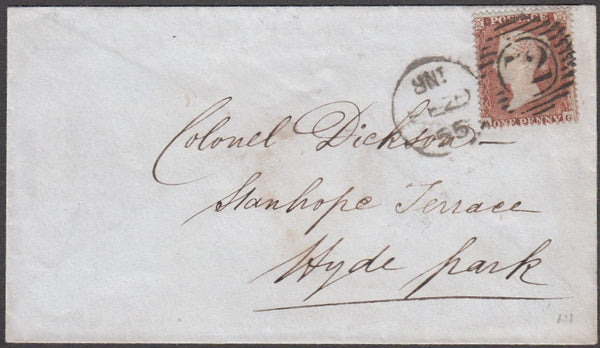 POSTAGE
21
ONE PENNY G
55
Colonel Dickson
Stanhope Terrace
Hyde park